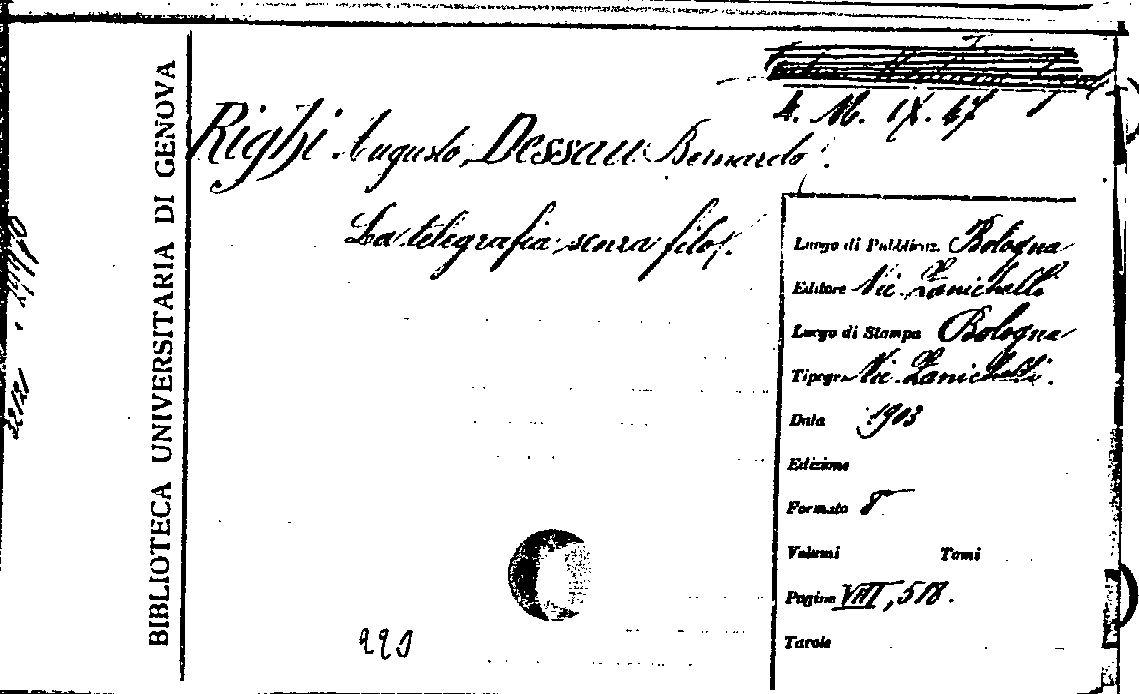 4. M. IX. 47
Righi Augusto, Dessau Bernardo.
La telegrafia senza filo.
BIBLIOTECA UNIVERSITARIA DI GENOVA
Luogo di Pubblicaz. Bologna
Editore Nic. Zanichelli
Luogo di Stampa Bologna
Tipogr. Nic. Zanichelli.
Data 1903
Edizione
Formato 8°
Volumi Tomi
Pagine VIII, 518.
Tavole